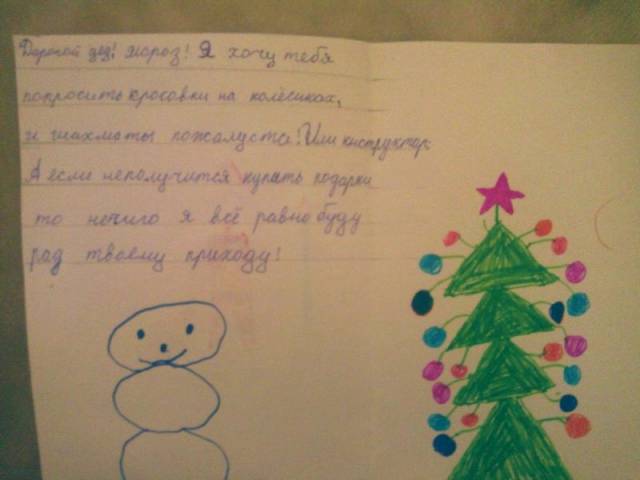 Дорогой дед! мороз! Я хочу тебя
попросить кросовки на колёсиках,
и шахматы пожалуста! Или киструктор.
А если неполучится купить подарки
то ничиго я всё равно буду
рад твоему приходу!